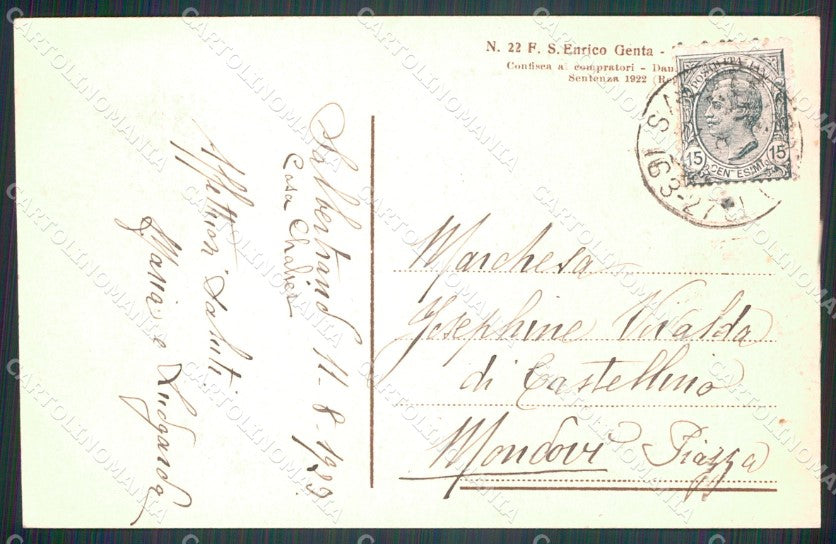 N. 22 F. S. Enrico Genta -
Confisca ai compratori - Dan
Sentenza 1922 (Re
15 15
CENTESIMI
16 3-27
Salbertrand 11-8-1929
Casa Chalier
Affettuosi Saluti
Maria e Luogarda
Marchesa
Josephine Vivalda
di Castellino
Mondovì Piazza
CARTOLINOMANIA